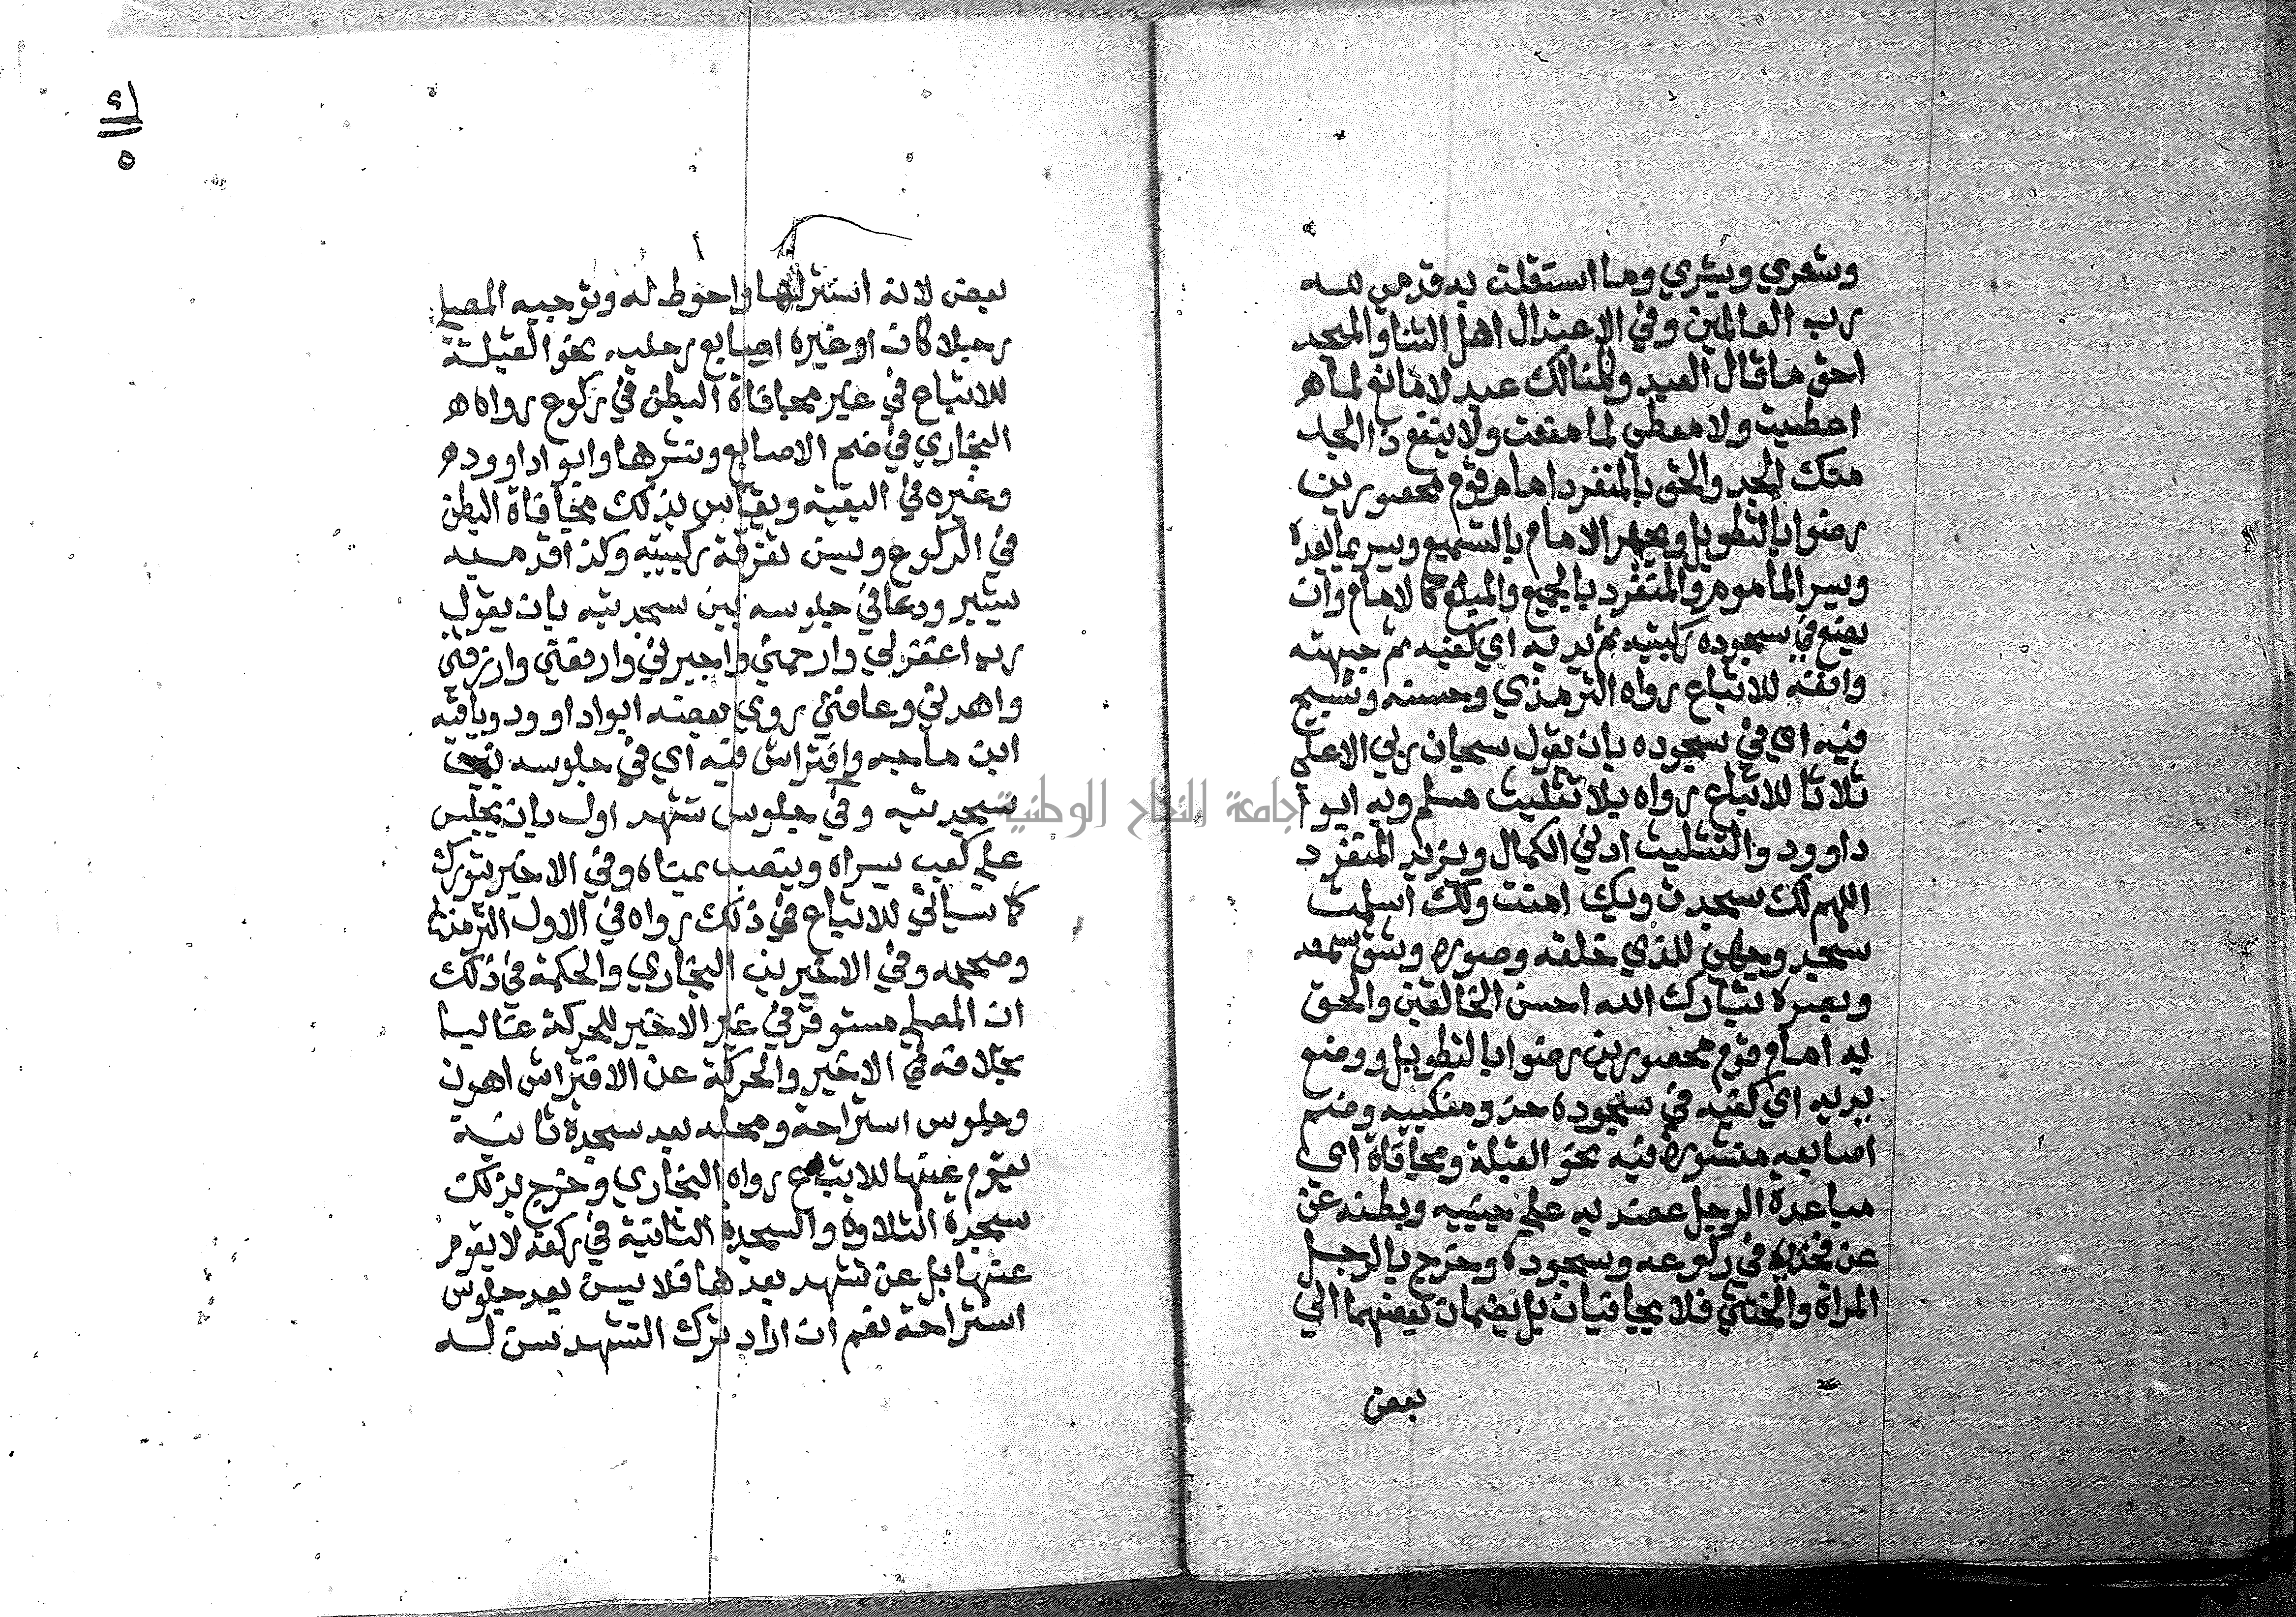 وشعري وبشري وما استقلت به قدمي لله
رب العالمين وفي الاعتدال اهل الثنا والمجد
احق ما قال العبد وكلنا لك عبد لا مانع لما
اعطيت ولا معطي لما منعت ولا ينفع ذا الجد
منك الجد والحق بالمنفرد امام قوم محصورين
رضوا بالتطويل ويجهر الامام بالتسميع ويسر بما بعده
ويسر الماموم والمنفرد بالجميع والمبلغ كالامام وان
يضع في سجوده ركبتيه ثم يديه اي كفيه ثم جبهته
وانفه للاتباع رواه الترمذي وحسنه وتسبيح
فيه اي في سجوده بان يقول سبحان ربي الاعلى
ثلاثا للاتباع رواه بلا تثليث مسلم وبه ابو
داوود والتثليث ادني الكمال ويزيد المنفرد
اللهم لك سجدت وبك امنت ولك اسلمت
سجد وجهي للذي خلقه وصوره وشق سمعه
وبصره تبارك الله احسن الخالقين والحق
به امام قوم محصورين رضوا بالتطويل ووضع
يديه اي كفيه في سجوده حذو منكبيه وضم
اصابعه منشورة فيه نحو القبلة ومجافاة اي
مباعدة الرجل عضديه علي جنبيه وبطنه عن
عن فخذيه في ركوعه وسجوده وخرج بالرجل
المراة والخنثي فلا يجافيان بل يضمان بعضهما الي
بعض
جامعة النجاح الوطنية
٥
بعض لانه استر لها واحوط له وتوجيه المصلي
رجلا كان او غيره اصابع رجليه نحو القبلة
للاتباع في غير مجافاة البطن في ركوع رواه
البخاري في ضم الاصابع ونشرها وابو داوود
وغيره في البقية ويقاس بذلك مجافاة البطن
في الركوع ويسن تفرقة ركبتيه وكذا قدميه
بشبر ودعا في جلوسه بين سجدتيه بان يقول
رب اغفر لي وارحمني واجبرني وارفعني وارزقني
واهدني وعافني روي بعضه ابو داوود وباقيه
ابن ماجه وافتراش فيه اي في جلوسه بين
سجدتيه وفي جلوس تشهد اول بان يجلس
علي كعب يسراه وينصب يمناه وفي الاخير يتورك
كما سياتي للاتباع في ذلك رواه في الاول الترمذي
وصححه وفي الاخيرين البخاري والحكمة في ذلك
ان المصلي مستوفز في غير الاخير للحركة غالبا
بخلافه في الاخير والحركة عن الافتراش اهون
وجلوس استراحة ومحله بعد سجدة ثانية
يقوم عنها للاتباع رواه البخاري وخرج بذلك
سجدة التلاوة والسجدة الثانية في ركعة لا يقوم
عنها بل عن تشهد بعدها فلا يسن بعد جلوس
استراحة نعم ان اراد ترك التشهد سن له